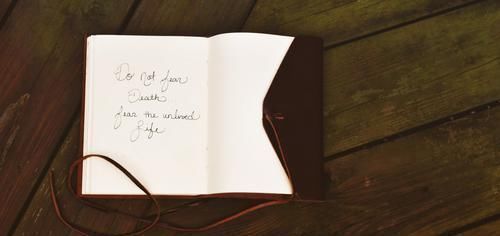 Do Not fear
Death
fear the unlived
Life